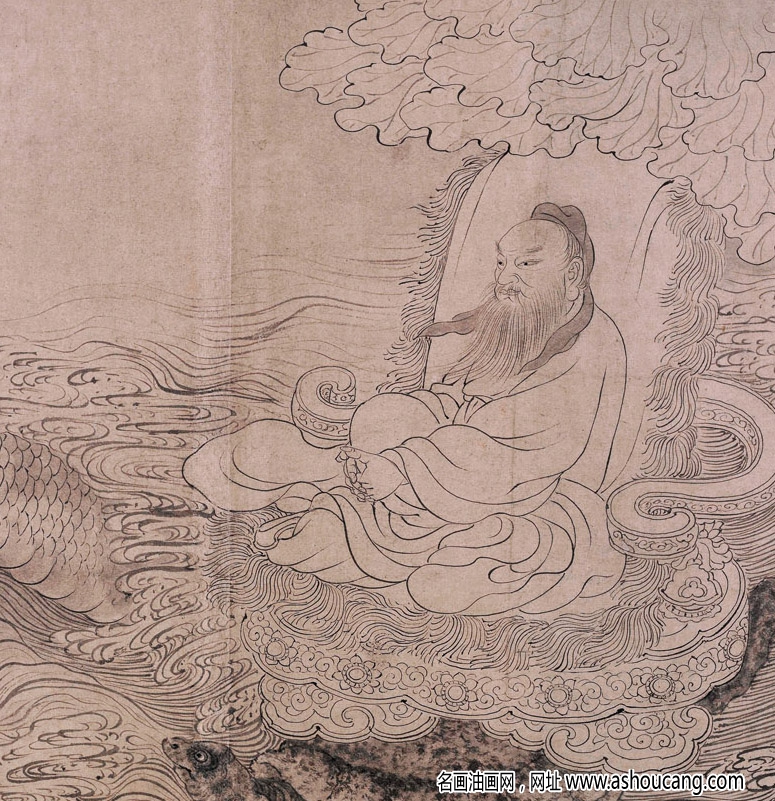 名画油画网，网址 www.ashoucang.com